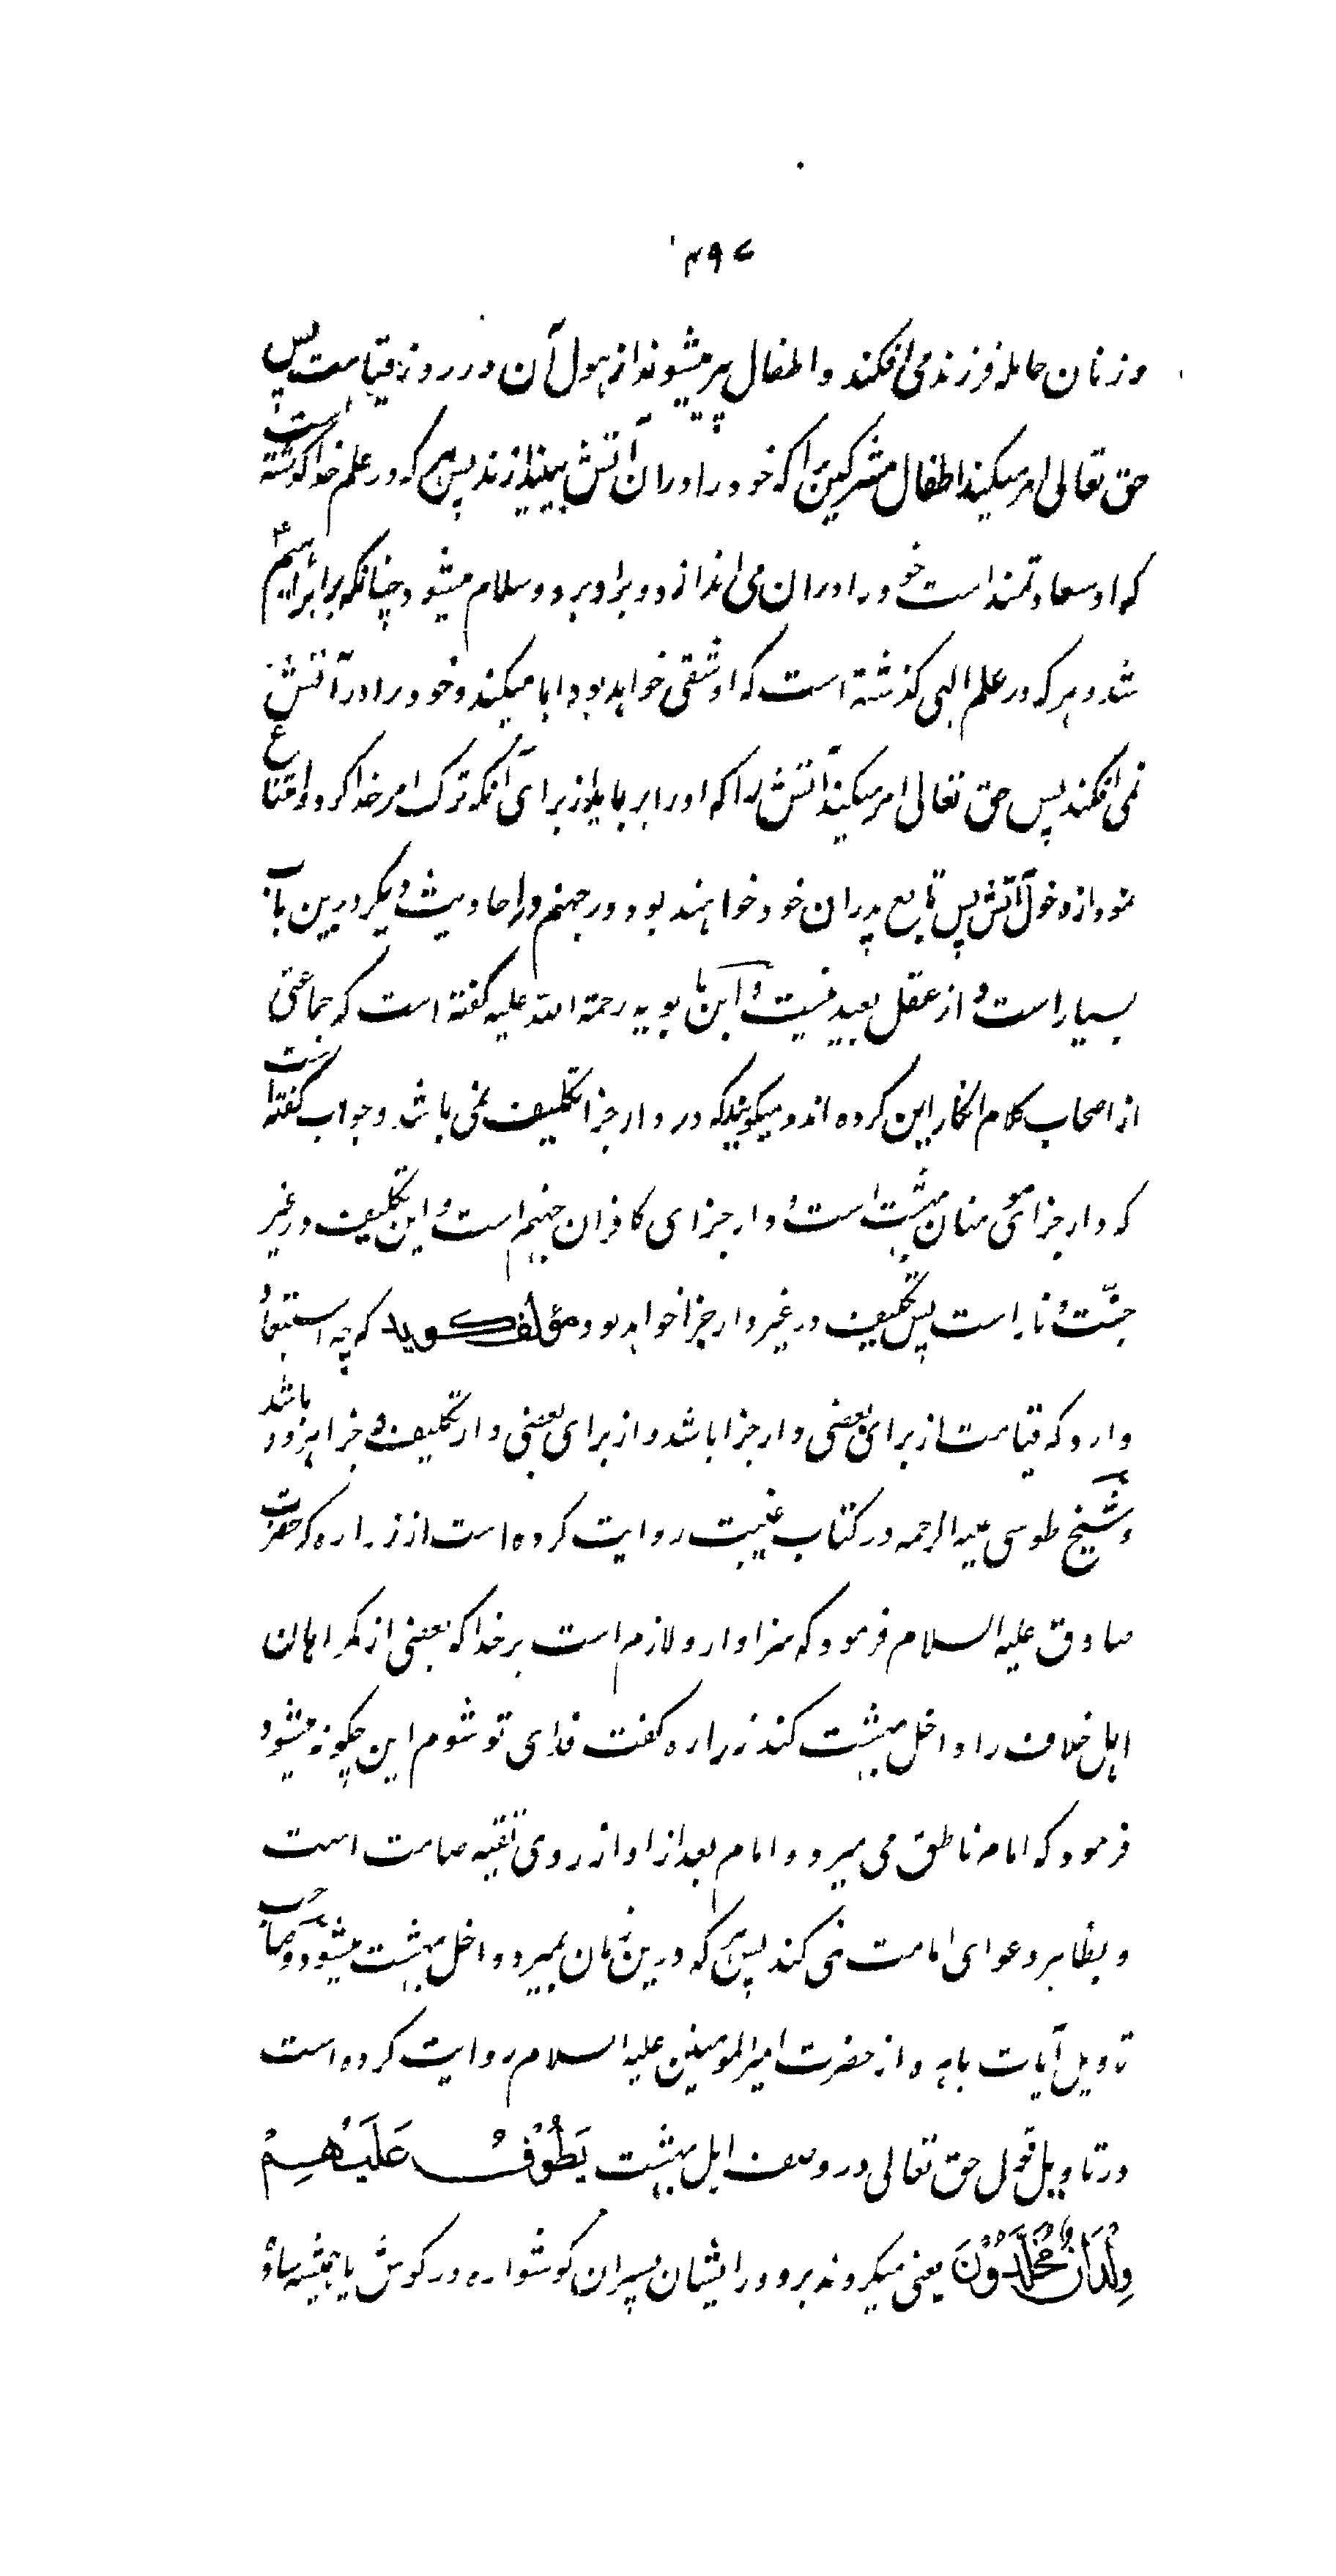 ۳۹۷
و زنان حامله فرزند می افکند و اطفال پیر میشوند از هول آن در روز قیامت پس
حق تعالی امر میکند اطفال مشرکین را که خود را در ان آتش بیندازند پس هر که در علم خدا گذشته است
که او سعادتمند است خود را در ان می اندازد و بر او برد و سلام میشود چنانکه بر ابراهیم ع
شد و هر که در علم الهی گذشته است که او شقی خواهد بود ابا میکند و خود را در آتش
نمی افکند پس حق تعالی امر میکند آتش را که او را برباید از برای آنکه ترک امر خدا کرد و امتناع
نمود از دخول آتش پس تابع پدران خود خواهند بود در جهنم و احادیث دیگر درین باب
بسیار است و از عقل بعید نیست و ابن بابویه رحمة الله علیه گفته است که جماعتی
از اصحاب کلام انکار این کرده اند و میگویند که در دار جزا تکلیف نمی باشد و جواب گفته است
که دار جزای مؤمنان بهشت است و دار جزای کافران جهنم است و این تکلیف در غیر
جنّت و نار است پس تکلیف در غیر دار جزا خواهد بود مؤلف گوید که چه استبعاد
دارد که قیامت از برای بعضی دار جزا باشد و از برای بعضی دار تکلیف و جزا هر دو باشد
و شیخ طوسی علیه الرحمه در کتاب غیبت روایت کرده است از زراره که حضرت
صادق علیه السلام فرمود که سزاوار و لازم است بر خدا که بعضی از گمراهان
اهل خلاف را داخل بهشت کند زراره گفت فدای تو شوم این چگونه میشود
فرمود که امام ناطق می میرد و امام بعد از او از روی تقیه صامت است
و بظاهر دعوای امامت نمی کند پس هر که درین زمان بمیرد داخل بهشت میشود و صاحب
تاویل آیات باهره از حضرت امیر المومنین علیه السلام روایت کرده است
در تاویل قول حق تعالی در وصف اهل بهشت یَطُوْفُ عَلَیْهِمْ
وِلْدَانٌ مُّخَلَّدُوْنَ یعنی میگردند بر دور ایشان پسران گوشواره در گوش یا همیشه ساده